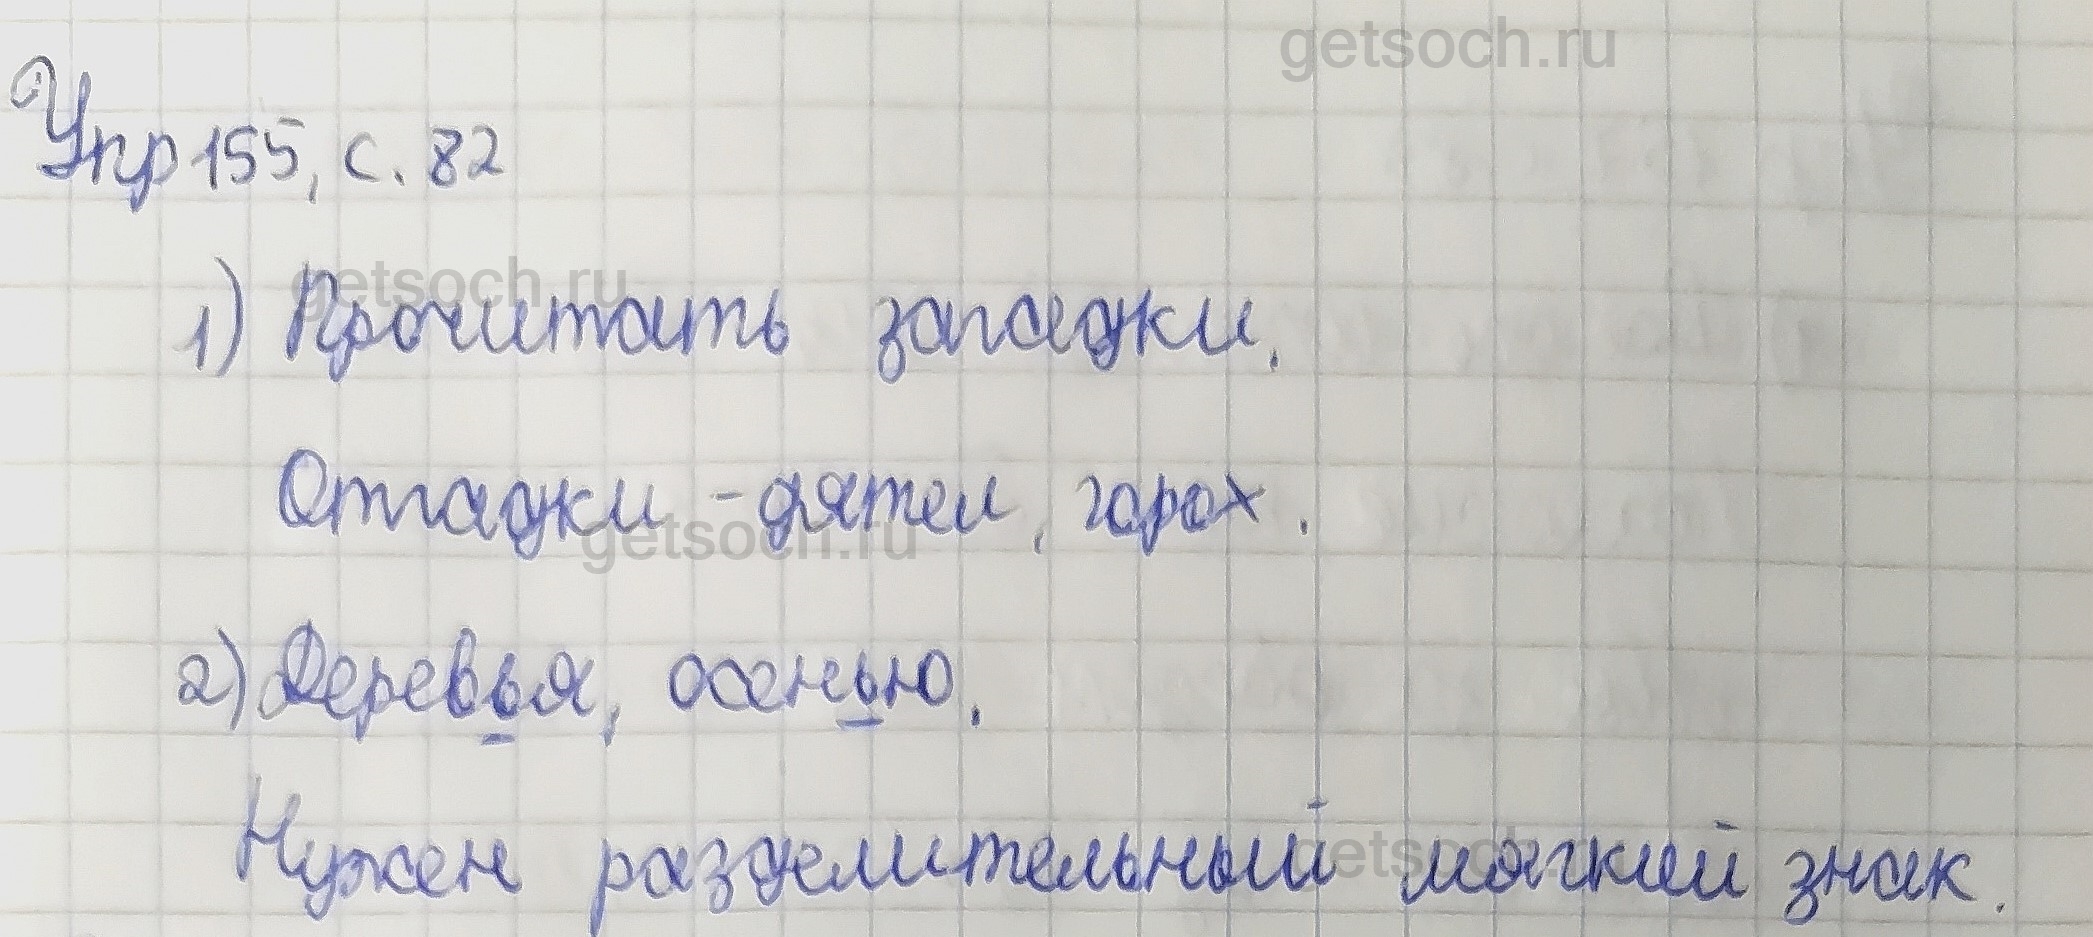 getsoch.ru
Упр 155, с. 82
getsoch.ru
1) Прочитать загадки.
Отгадки - дятел, горох.
getsoch.ru
2) Деревья, осенью.
Нужен разделительный мягкий знак.
getsoch.ru